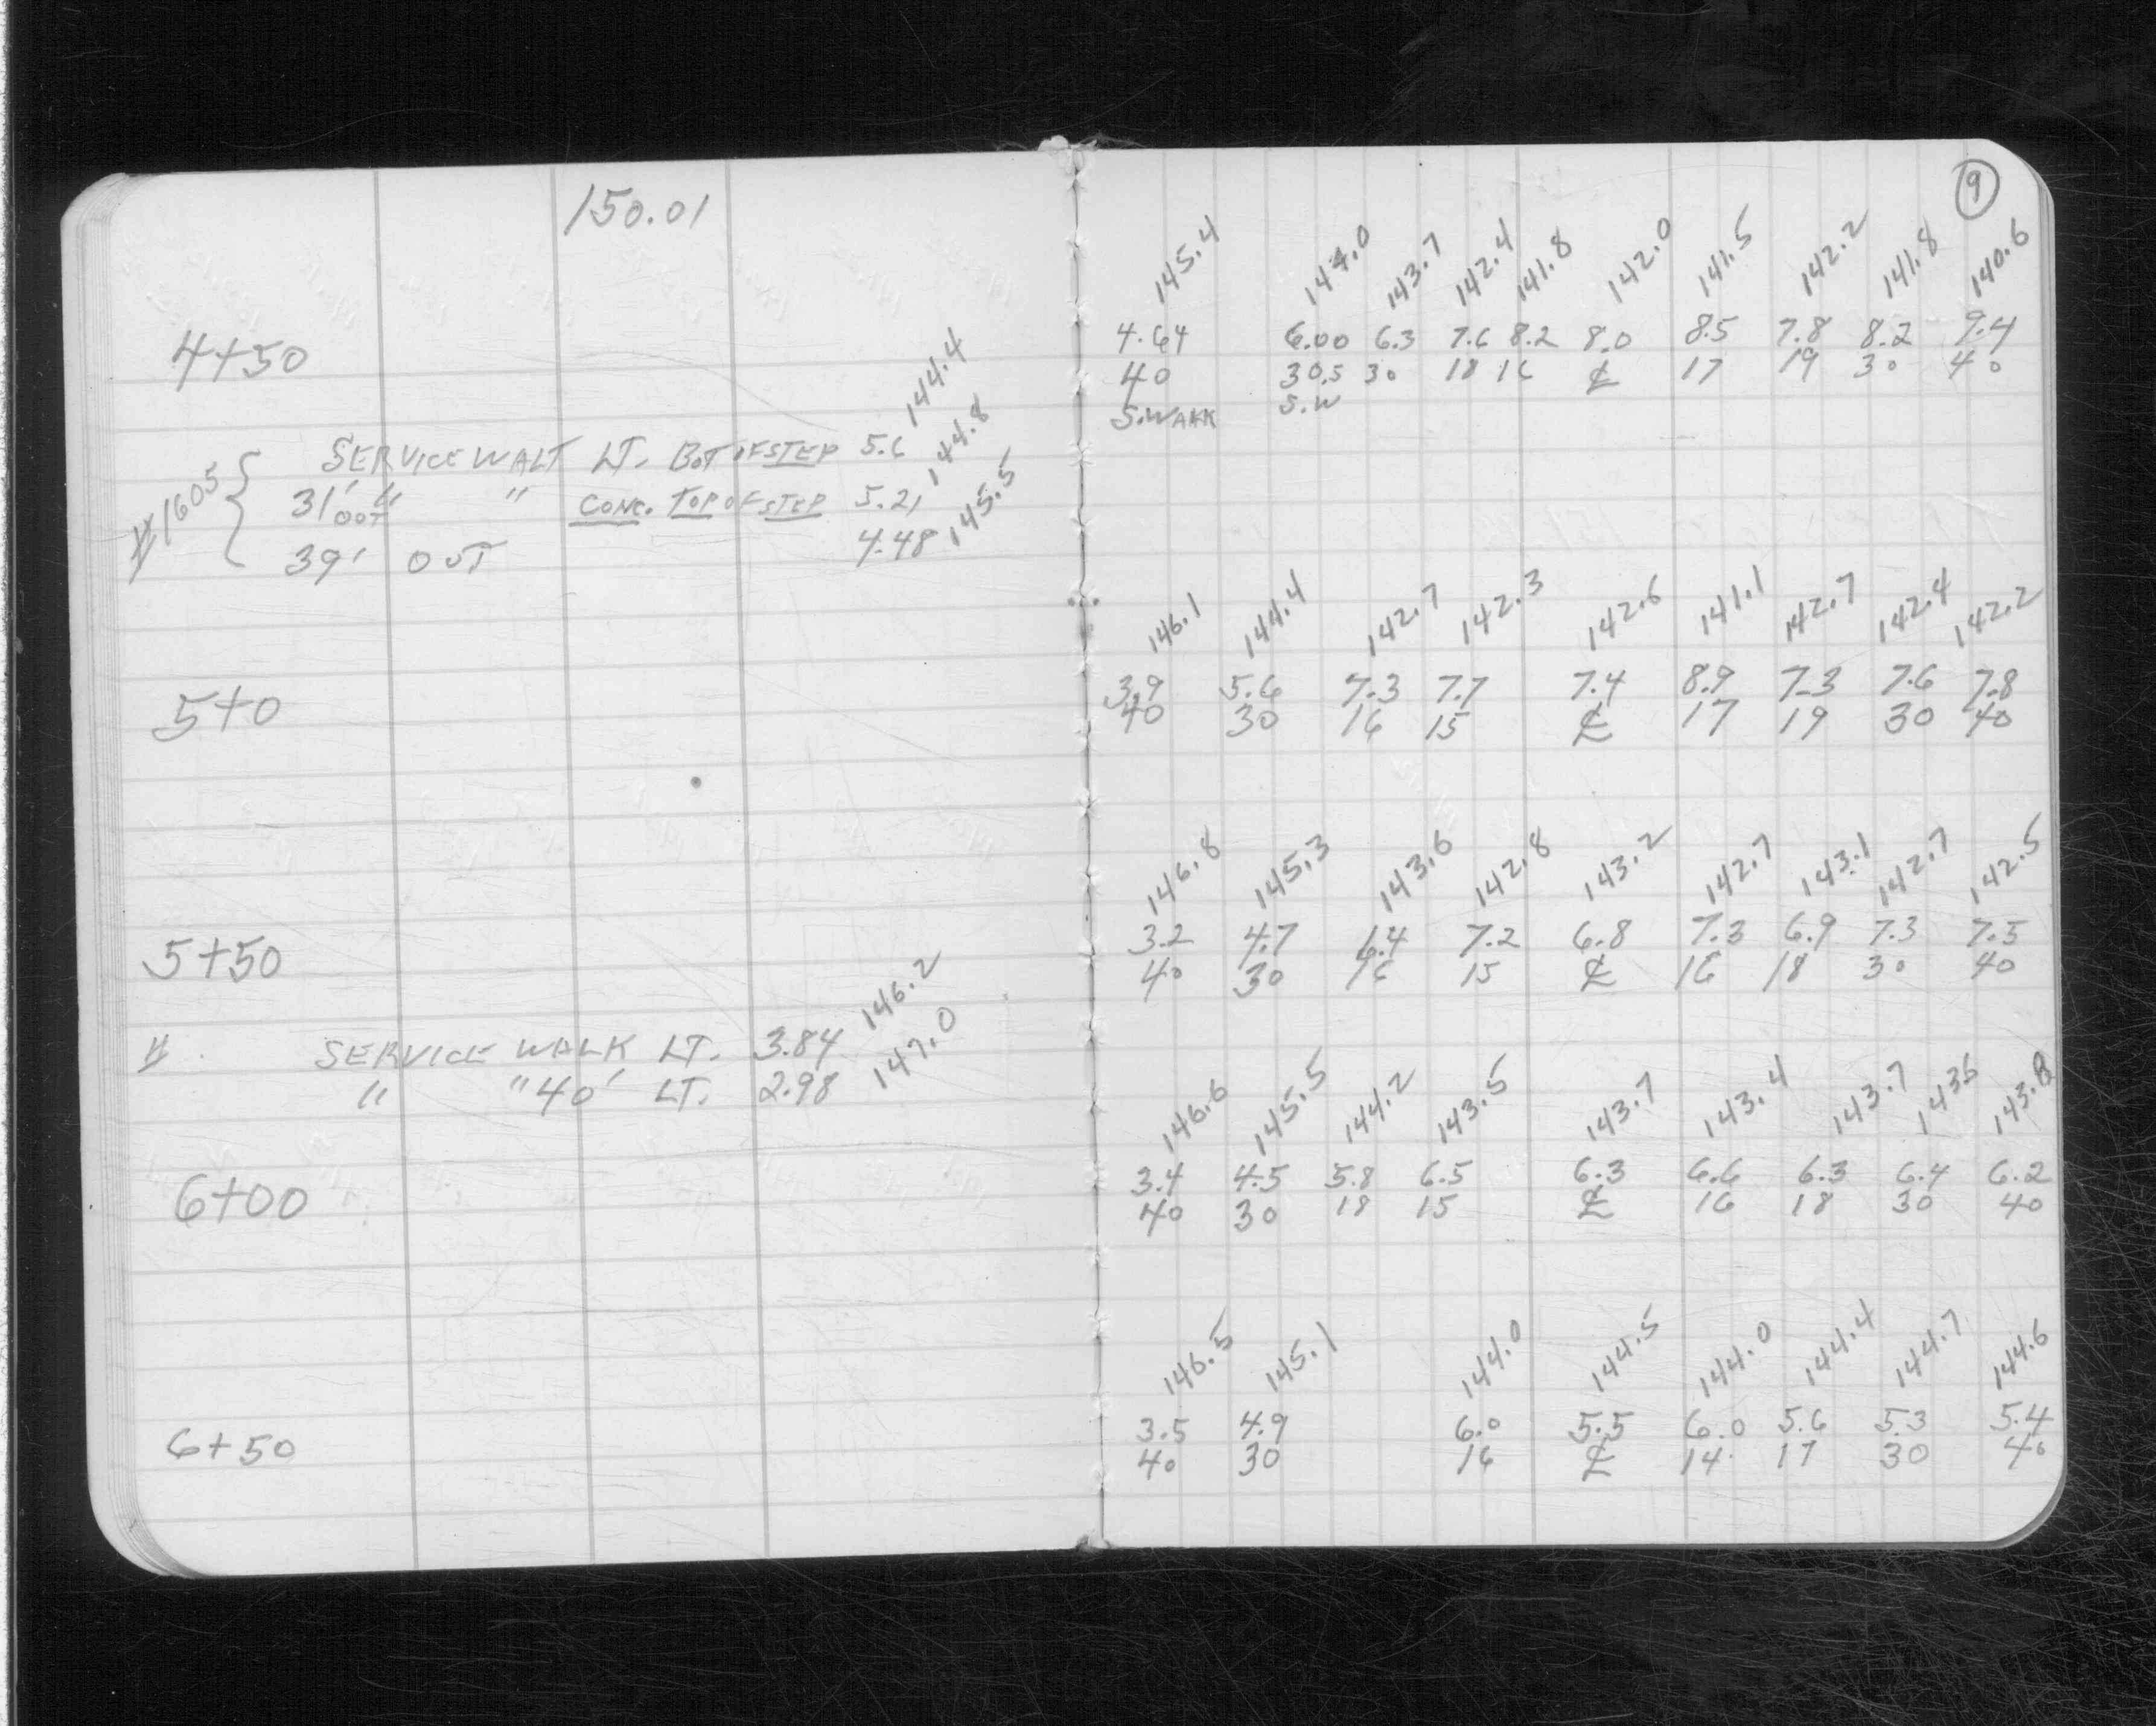 150.01
4+50
#1605 { SERVICE WALT LT. BOT OF STEP 5.6 144.4
31' OUT " " CONC. TOP OF STEP 5.21 144.8
39' OUT 4.48 145.5
5+0
5+50
# SERVICE WALK LT. 3.84 146.2
" " 40' LT. 2.98 147.0
6+00
6+50
9
145.4 144.0 143.7 142.4 141.8 142.0 141.5 142.2 141.8 140.6
4.64 6.00 6.3 7.6 8.2 8.0 8.5 7.8 8.2 9.4
40 30.5 30 18 16 ℄ 17 19 30 40
S.WALK S.W
146.1 144.4 142.7 142.3 142.6 141.1 142.7 142.4 142.2
3.9 5.6 7.3 7.7 7.4 8.9 7.3 7.6 7.8
40 30 16 15 ℄ 17 19 30 40
146.8 145.3 143.6 142.8 143.2 142.7 143.1 142.7 142.5
3.2 4.7 6.4 7.2 6.8 7.3 6.9 7.3 7.5
40 30 16 15 ℄ 16 18 30 40
146.6 145.5 144.2 143.5 143.7 143.4 143.7 143.6 143.8
3.4 4.5 5.8 6.5 6.3 6.6 6.3 6.4 6.2
40 30 18 15 ℄ 16 18 30 40
146.5 145.1 144.0 144.5 144.0 144.4 144.7 144.6
3.5 4.9 6.0 5.5 6.0 5.6 5.3 5.4
40 30 16 ℄ 14 17 30 40